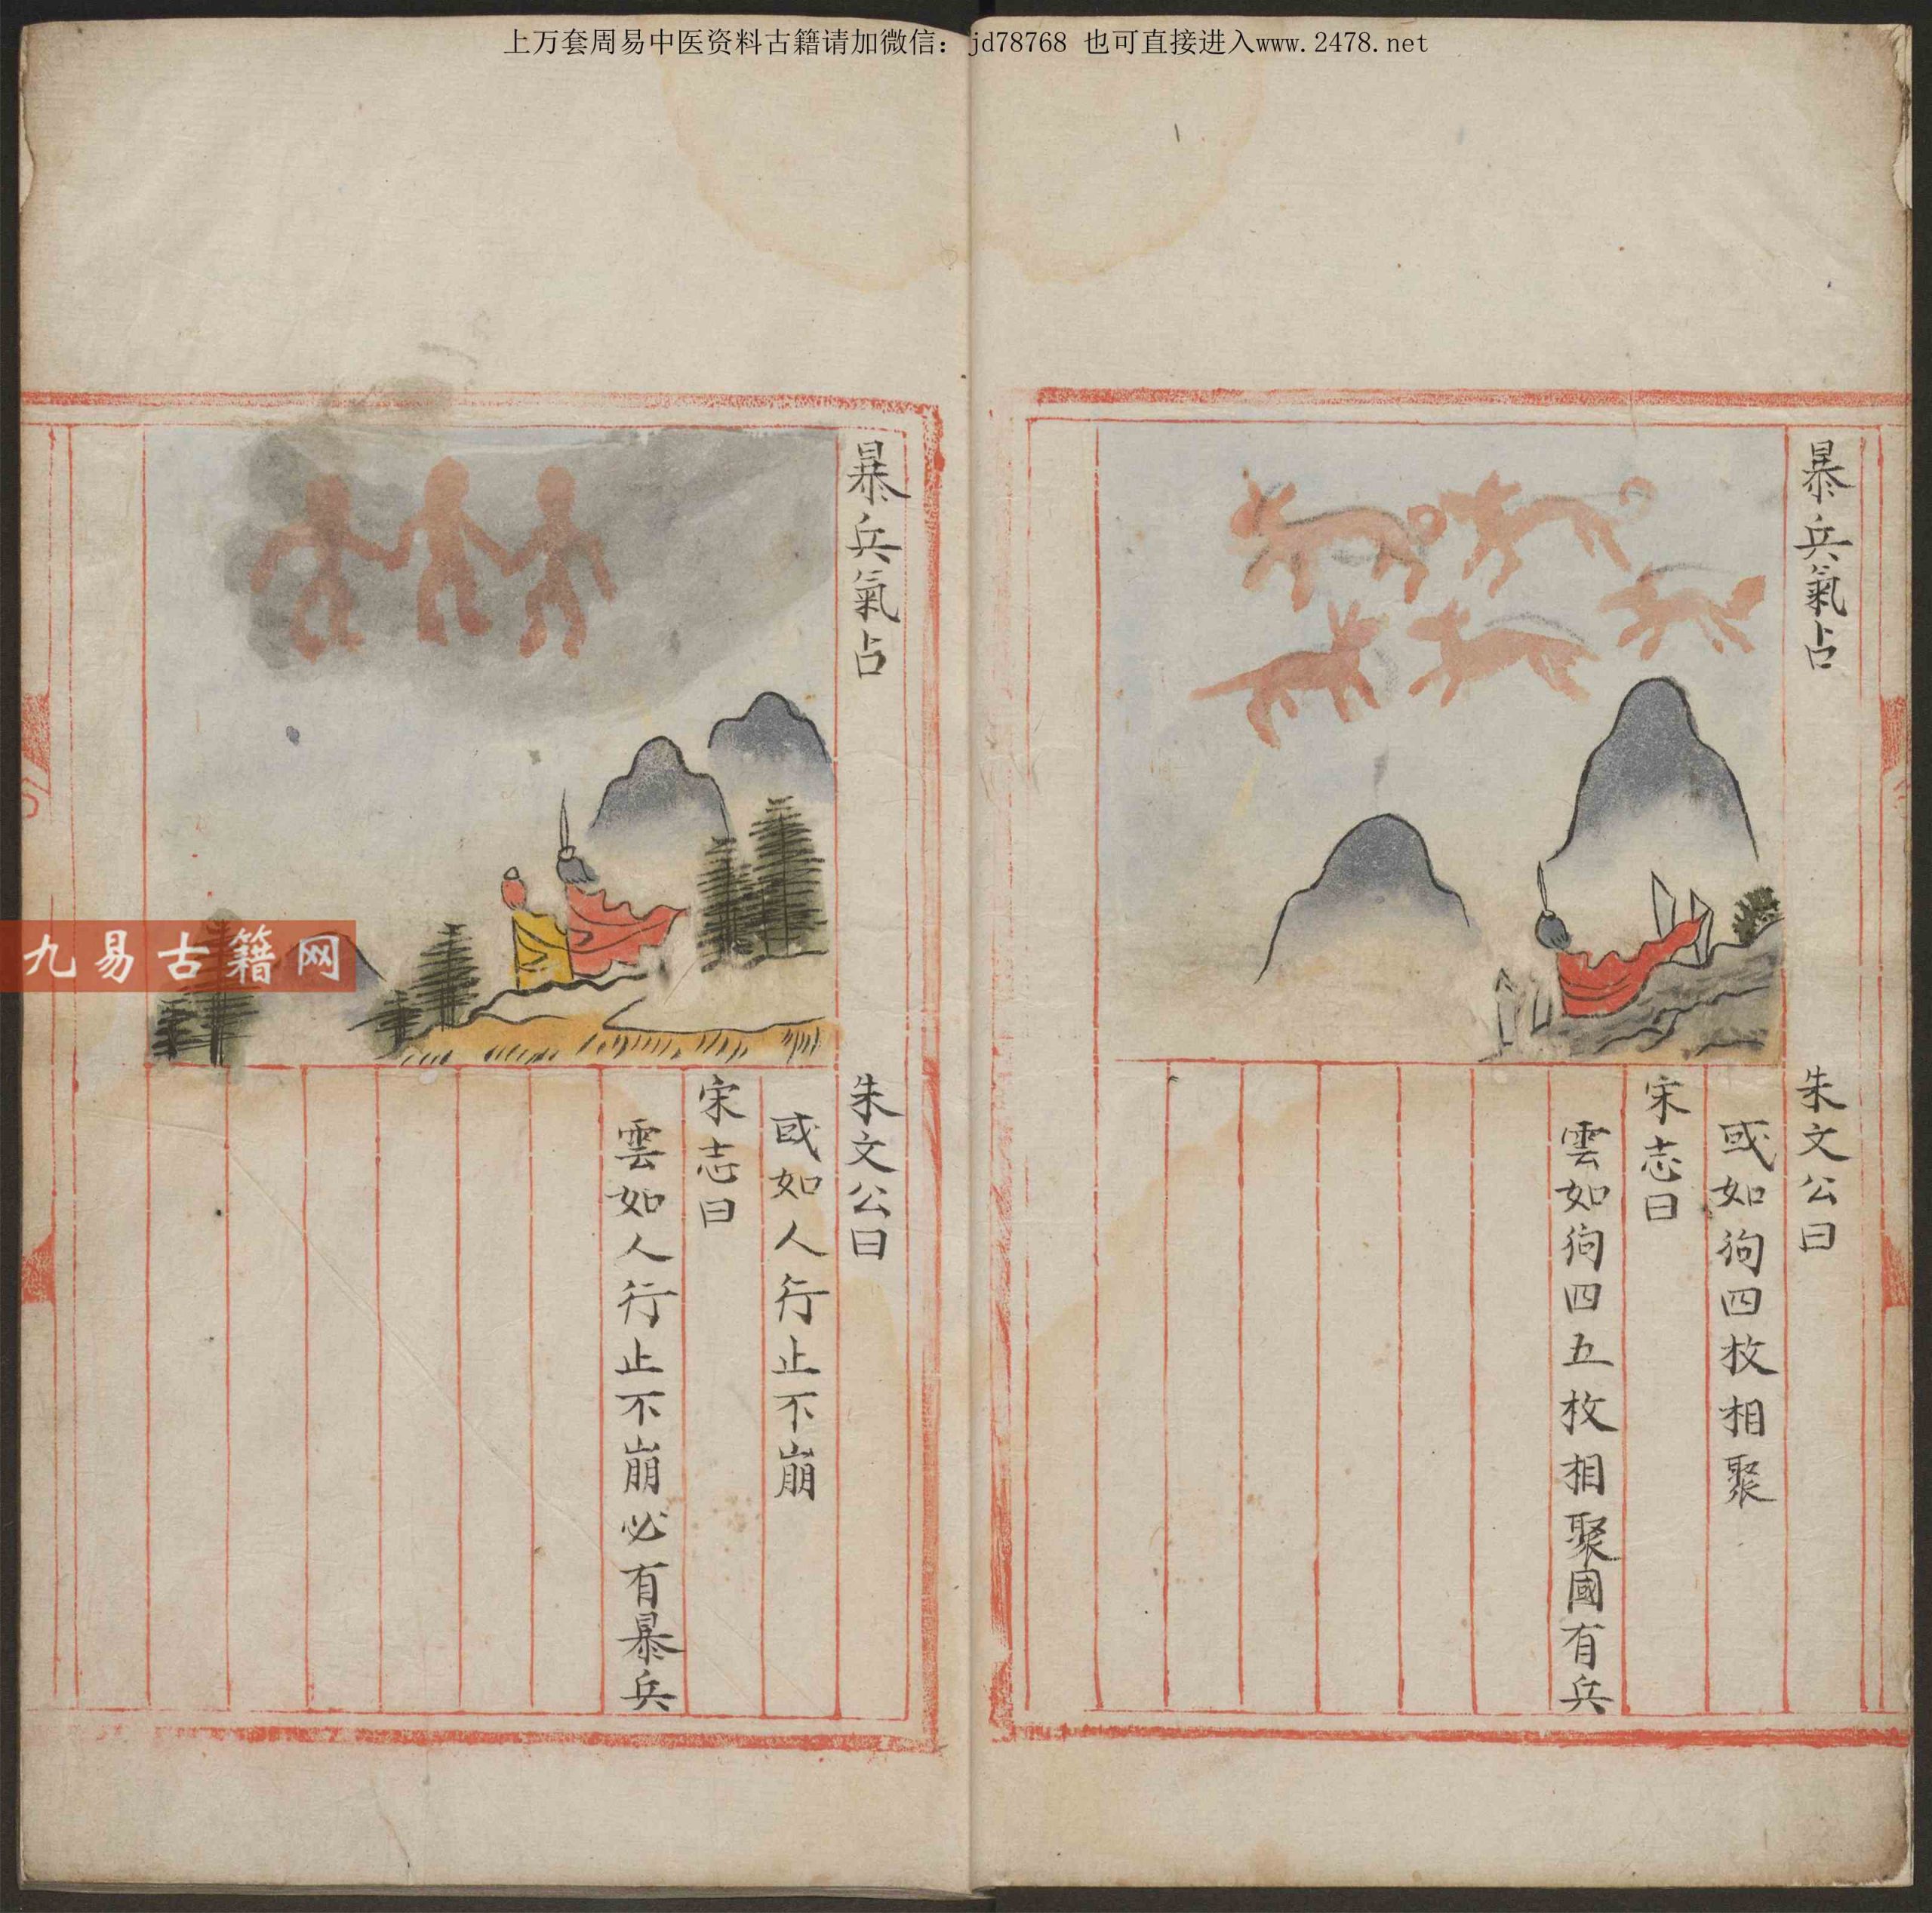 上万套周易中医资料古籍请加微信：jd78768 也可直接进入www.2478.net
暴兵氣占
朱文公曰
或如狥四枚相聚
宋志曰
雲如狥四五枚相聚國有兵
暴兵氣占
朱文公曰
或如人行止不崩
宋志曰
雲如人行止不崩必有暴兵
九易古籍网